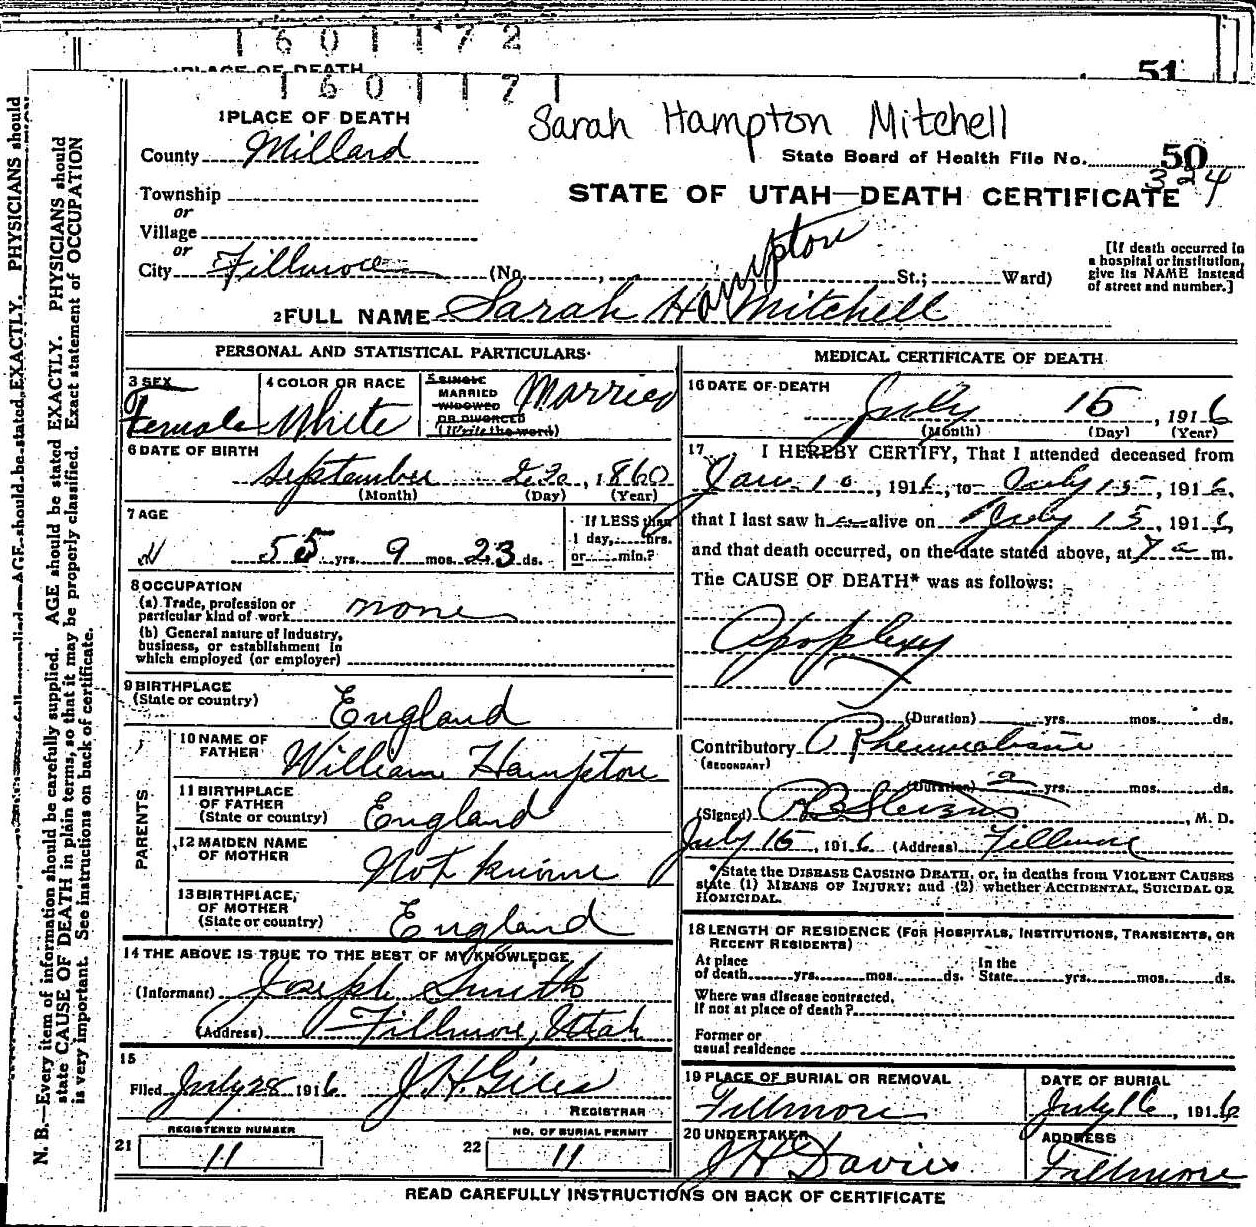 1601172
1 PLACE OF DEATH
51
1601171
1 PLACE OF DEATH
Sarah Hampton Mitchell
County Millard
State Board of Health File No. 50
324
Township
STATE OF UTAH—DEATH CERTIFICATE
or
Village
or
City Fillmore (No. , St.; Ward)
[If death occurred in a hospital or institution, give its NAME instead of street and number.]
Hampton
2 FULL NAME Sarah H Mitchell
PERSONAL AND STATISTICAL PARTICULARS
3 SEX
Female
4 COLOR OR RACE
White
5 SINGLE
MARRIED
WIDOWED
OR DIVORCED
(Write the word)
Married
6 DATE OF BIRTH
September 22, 1860
(Month) (Day) (Year)
7 AGE
55 yrs. 9 mos. 23 ds.
If LESS than
1 day, hrs.
or min.?
8 OCCUPATION
(a) Trade, profession or
particular kind of work none
(b) General nature of industry,
business, or establishment in
which employed (or employer)
9 BIRTHPLACE
(State or country)
England
PARENTS
10 NAME OF
FATHER
William Hampton
11 BIRTHPLACE
OF FATHER
(State or country)
England
12 MAIDEN NAME
OF MOTHER
Not known
13 BIRTHPLACE,
OF MOTHER
(State or country)
England
14 THE ABOVE IS TRUE TO THE BEST OF MY KNOWLEDGE
(Informant) Joseph Smith
(Address) Fillmore, Utah
15
Filed July 28 1916 J H Giles
REGISTRAR
21 REGISTERED NUMBER
11
22 NO. OF BURIAL PERMIT
11
MEDICAL CERTIFICATE OF DEATH
16 DATE OF DEATH
July 15, 1916
(Month) (Day) (Year)
17 I HEREBY CERTIFY, That I attended deceased from
Jan. 10, 1916, to July 15, 1916,
that I last saw her alive on July 15, 1916,
and that death occurred, on the date stated above, at 7 a m.
The CAUSE OF DEATH* was as follows:
Apoplexy
(Duration) yrs. mos. ds.
Contributory Rheumatism
(SECONDARY)
(Duration) yrs. mos. ds.
(Signed) Stevens, M. D.
July 15, 1916 (Address) Fillmore
*State the DISEASE CAUSING DEATH, or, in deaths from VIOLENT CAUSES
state (1) MEANS OF INJURY; and (2) whether ACCIDENTAL, SUICIDAL OR
HOMICIDAL.
18 LENGTH OF RESIDENCE (FOR HOSPITALS, INSTITUTIONS, TRANSIENTS, OR
RECENT RESIDENTS)
At place
of death yrs. mos. ds.
In the
State yrs. mos. ds.
Where was disease contracted,
if not at place of death?
Former or
usual residence
19 PLACE OF BURIAL OR REMOVAL
Fillmore
DATE OF BURIAL
July 16, 1916
20 UNDERTAKER
J H Davies
ADDRESS
Fillmore
READ CAREFULLY INSTRUCTIONS ON BACK OF CERTIFICATE
N. B.—Every item of information should be carefully supplied. AGE should be stated EXACTLY. PHYSICIANS should
state CAUSE OF DEATH in plain terms, so that it may be properly classified. Exact statement of OCCUPATION
is very important. See instructions on back of certificate.